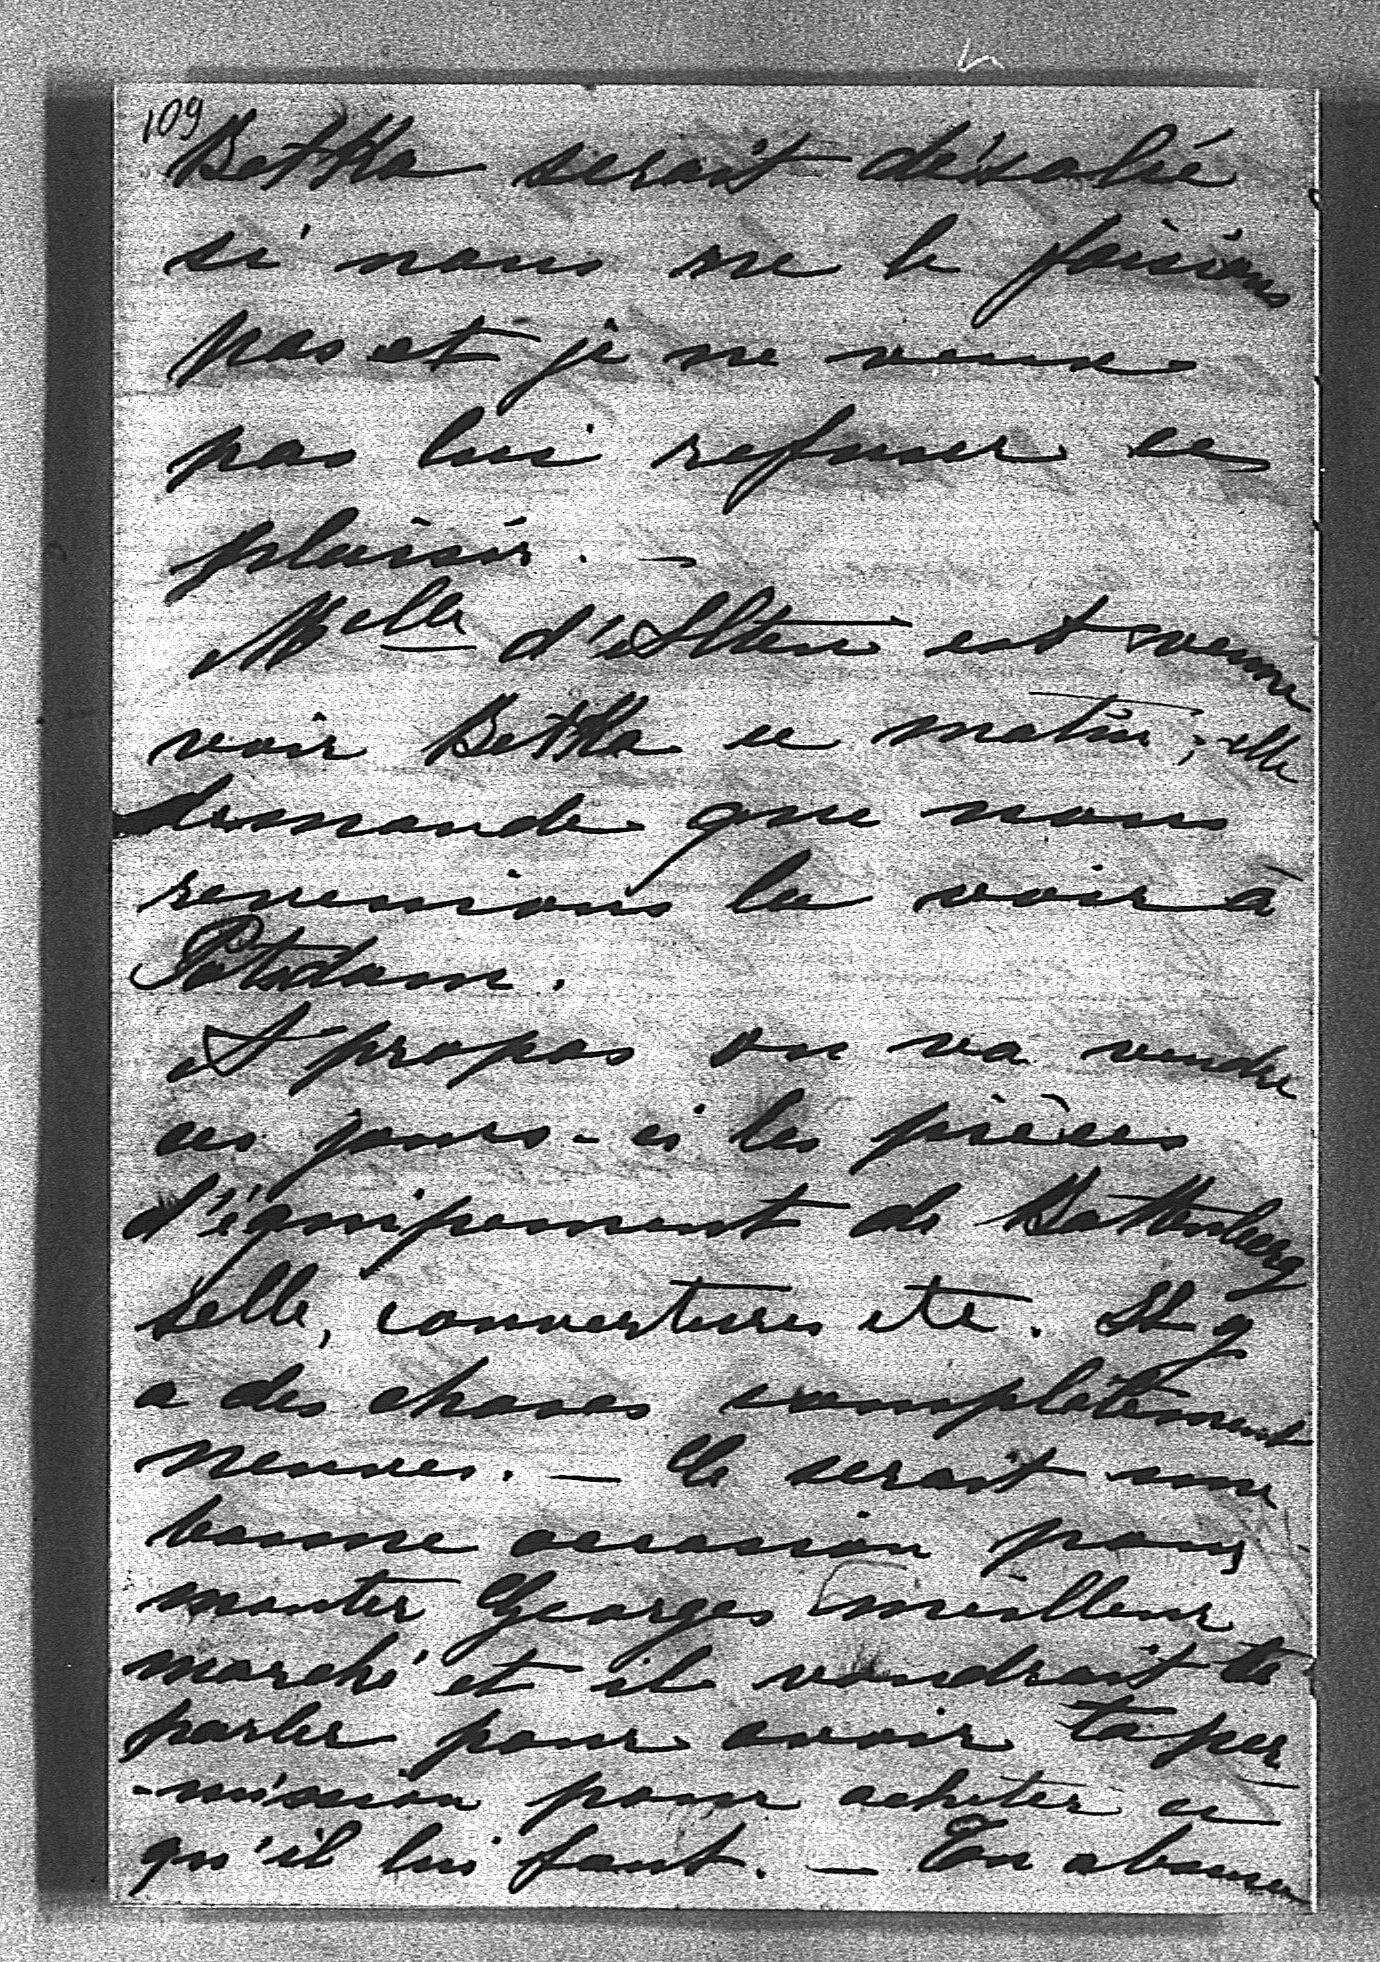 109
Betka serait désolée
si nous ne le faisions
pas et je ne veux
pas lui refuser ce
plaisir. –
Melle d'Alten est venue
voir Betka ce matin; elle
demande que nous
revenions la voir à
Potsdam.
A propos on va vendre
ces jours-ci les pièces
d'équipement de Battenberg
selle, couvertures etc. Il y
a des choses complètement
neuves. – Ce serait une
bonne occasion pour
monter Georges meilleur
marché et il voudrait te
parler pour avoir ta per
-mission pour acheter ce
qu'il lui faut. – Ton absence